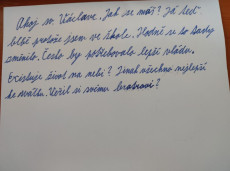 Ahoj sv. Václave. Jak se máš? Já teď
blbě protože jsem ve škole. Hodně se to tady
změnilo. Česko by potřebovalo lepší vládu.
Existuje život na nebi? Jinak všechno nejlepší
ke svátku. Věřil si svému bratrovi?